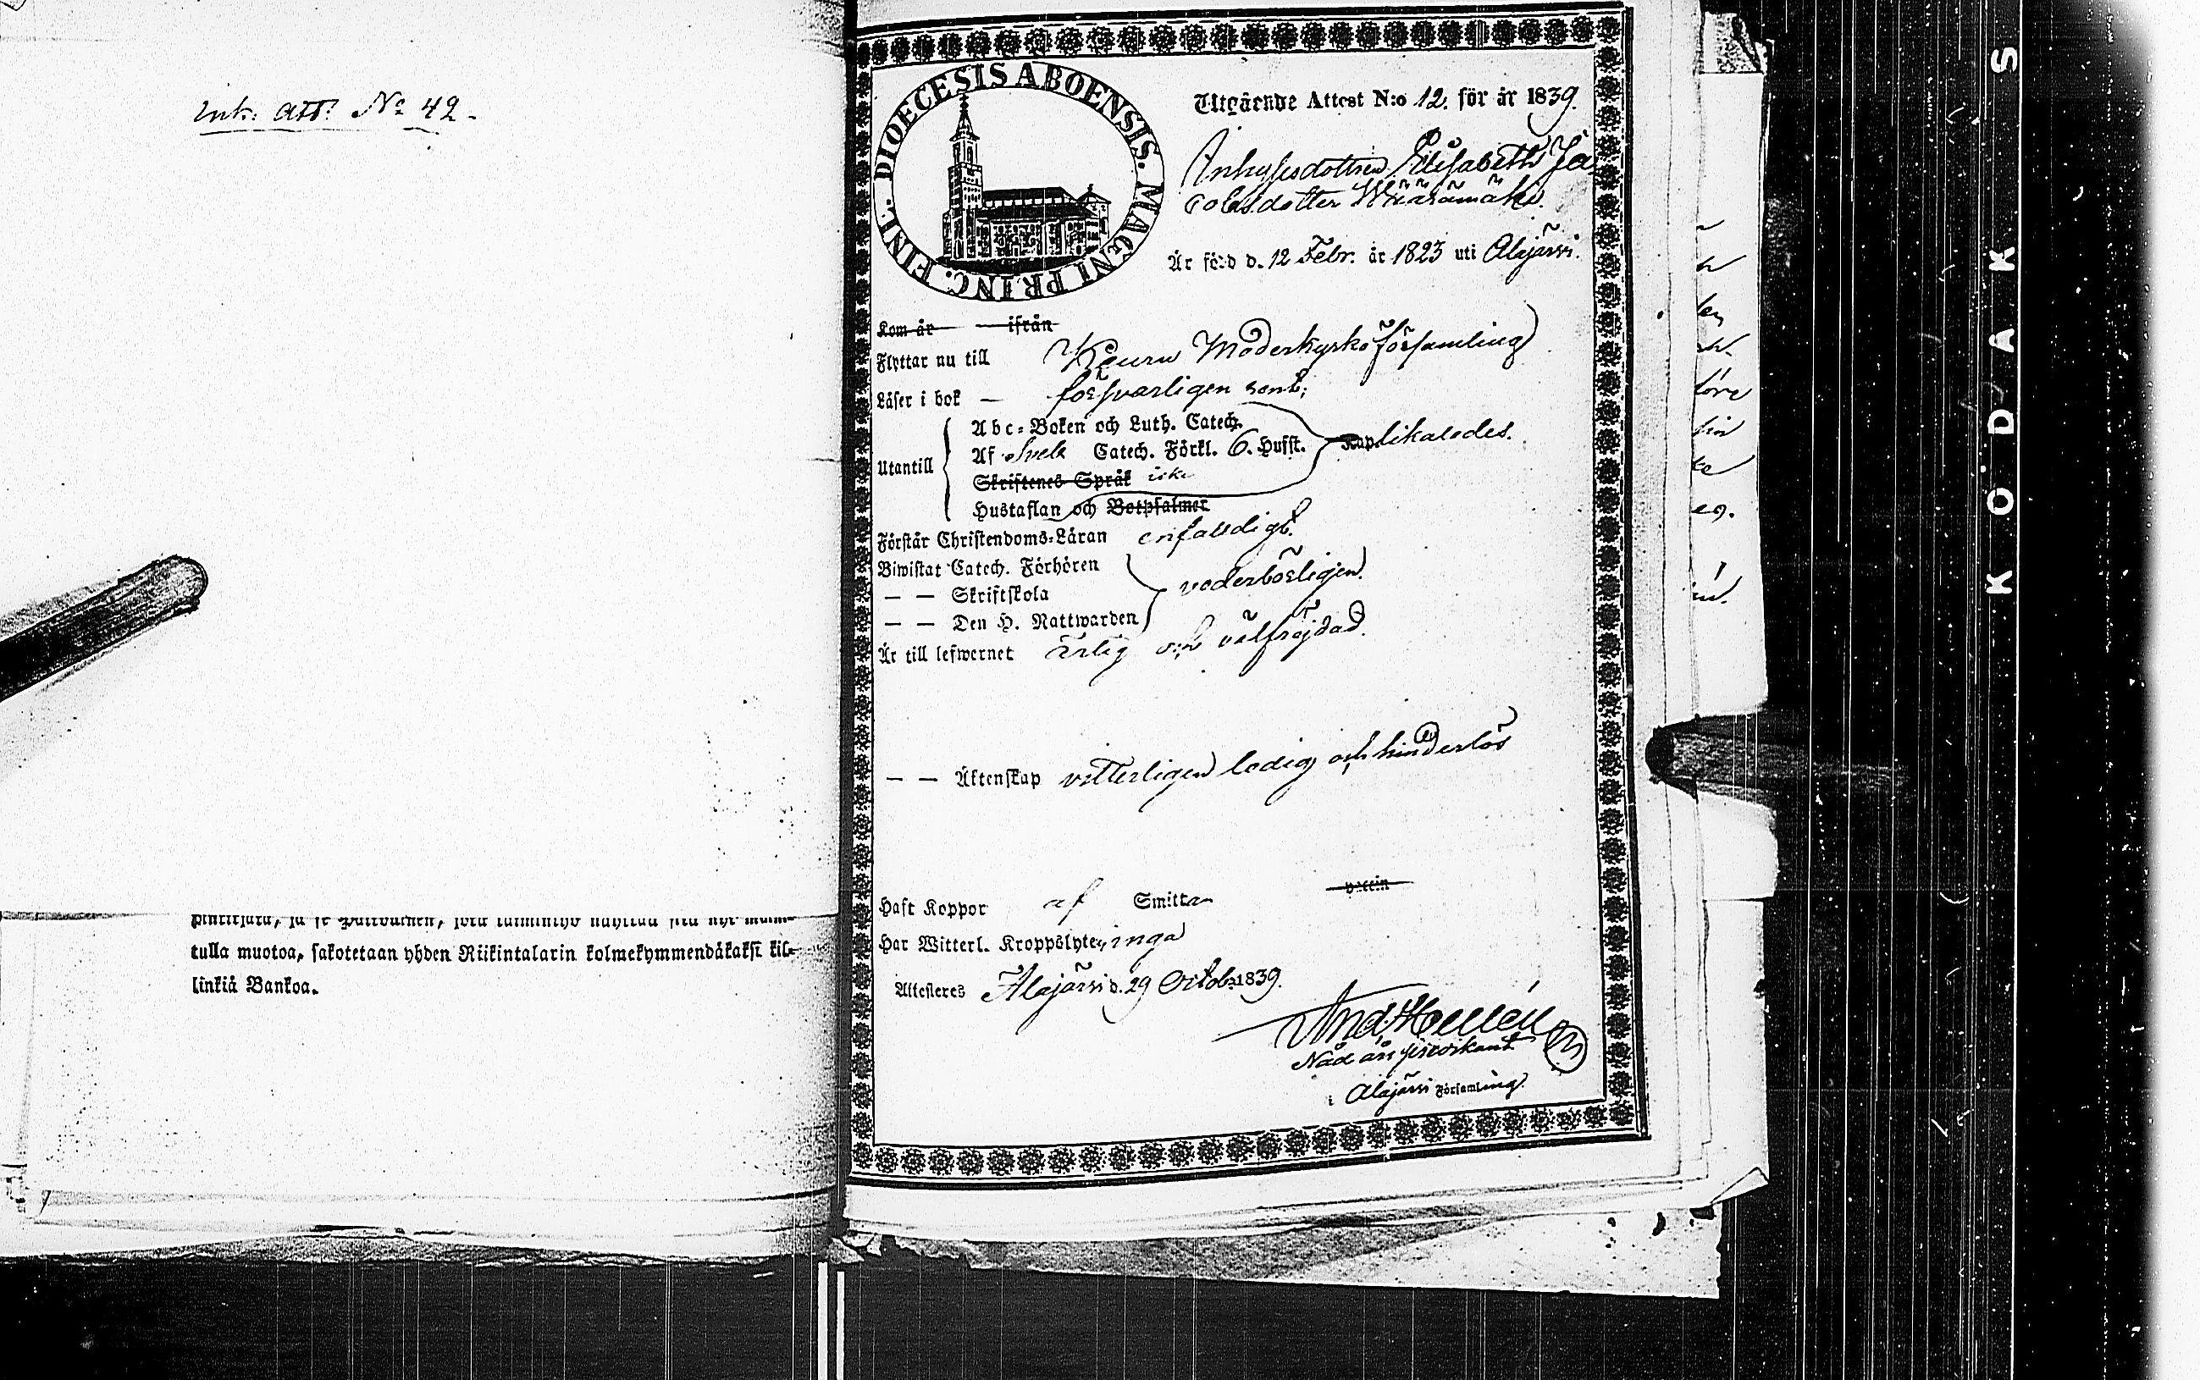 Ink. att. No 42.
tulla muotoa, sakotetaan yhden Riikintalarin kolmekymmendäkaksi kil-
linkiä Bankoa.
DIOECESIS ABOENSIS. MAGNI PRINC. FINL.
Utgående Attest N:o 12. för år 1839.
Inhysesdottren Elisabeth Ja
cobsdotter Wääsämäki.
Är född d. 12 Febr. år 1823 uti Alajärvi.
Kom år ifrån
Flyttar nu till Keuru Moderkyrko församling
Läser i bok — försvarligen samt
Utantill
Abc-Boken och Luth. Catech.
Af Sveb. Catech. Förkl. 6. Hufst. Kap likaledes.
Skriftenes Språk icke
Hustaflan och Botpsalmer
Förstår Christendoms-Läran enfaldigt.
Biwistat Catech. Förhören
— — Skriftskola vederbörligen.
— — Den H. Nattwarden
Är till lefwernet ärlig och välfräjdad.
— — Äktenskap vitterligen ledig och hinderlös
Haft Koppor af Smitta vaccin
Har Witterl. Kroppslyten inga
Attesteres Alajärvi d. 29 Octob. 1839.
And. Hellén
i Alajärvi Församling.
KODAK S